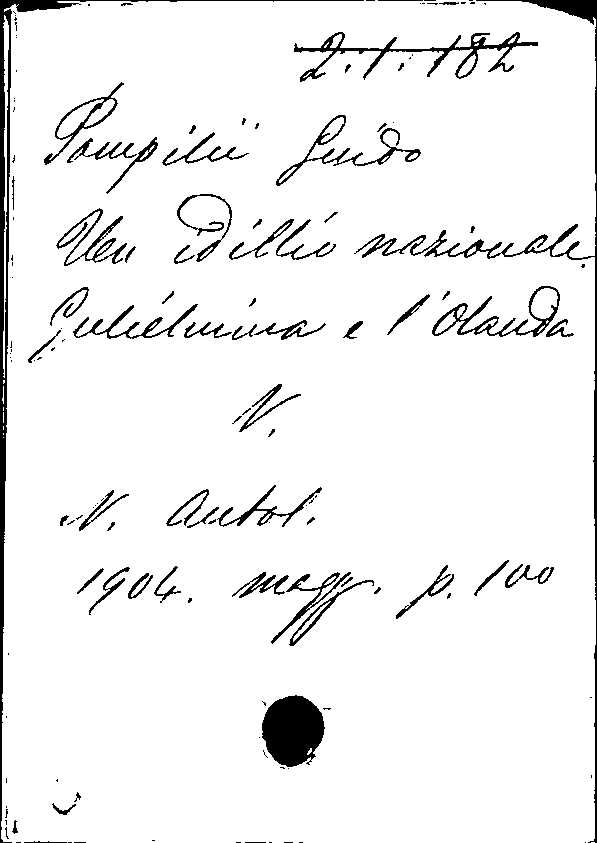 2.1.182
Pompilii Guido
Un idillio nazionale.
Gulielmina e l'Olanda
N.
N. Antol.
1904. magg. p. 100